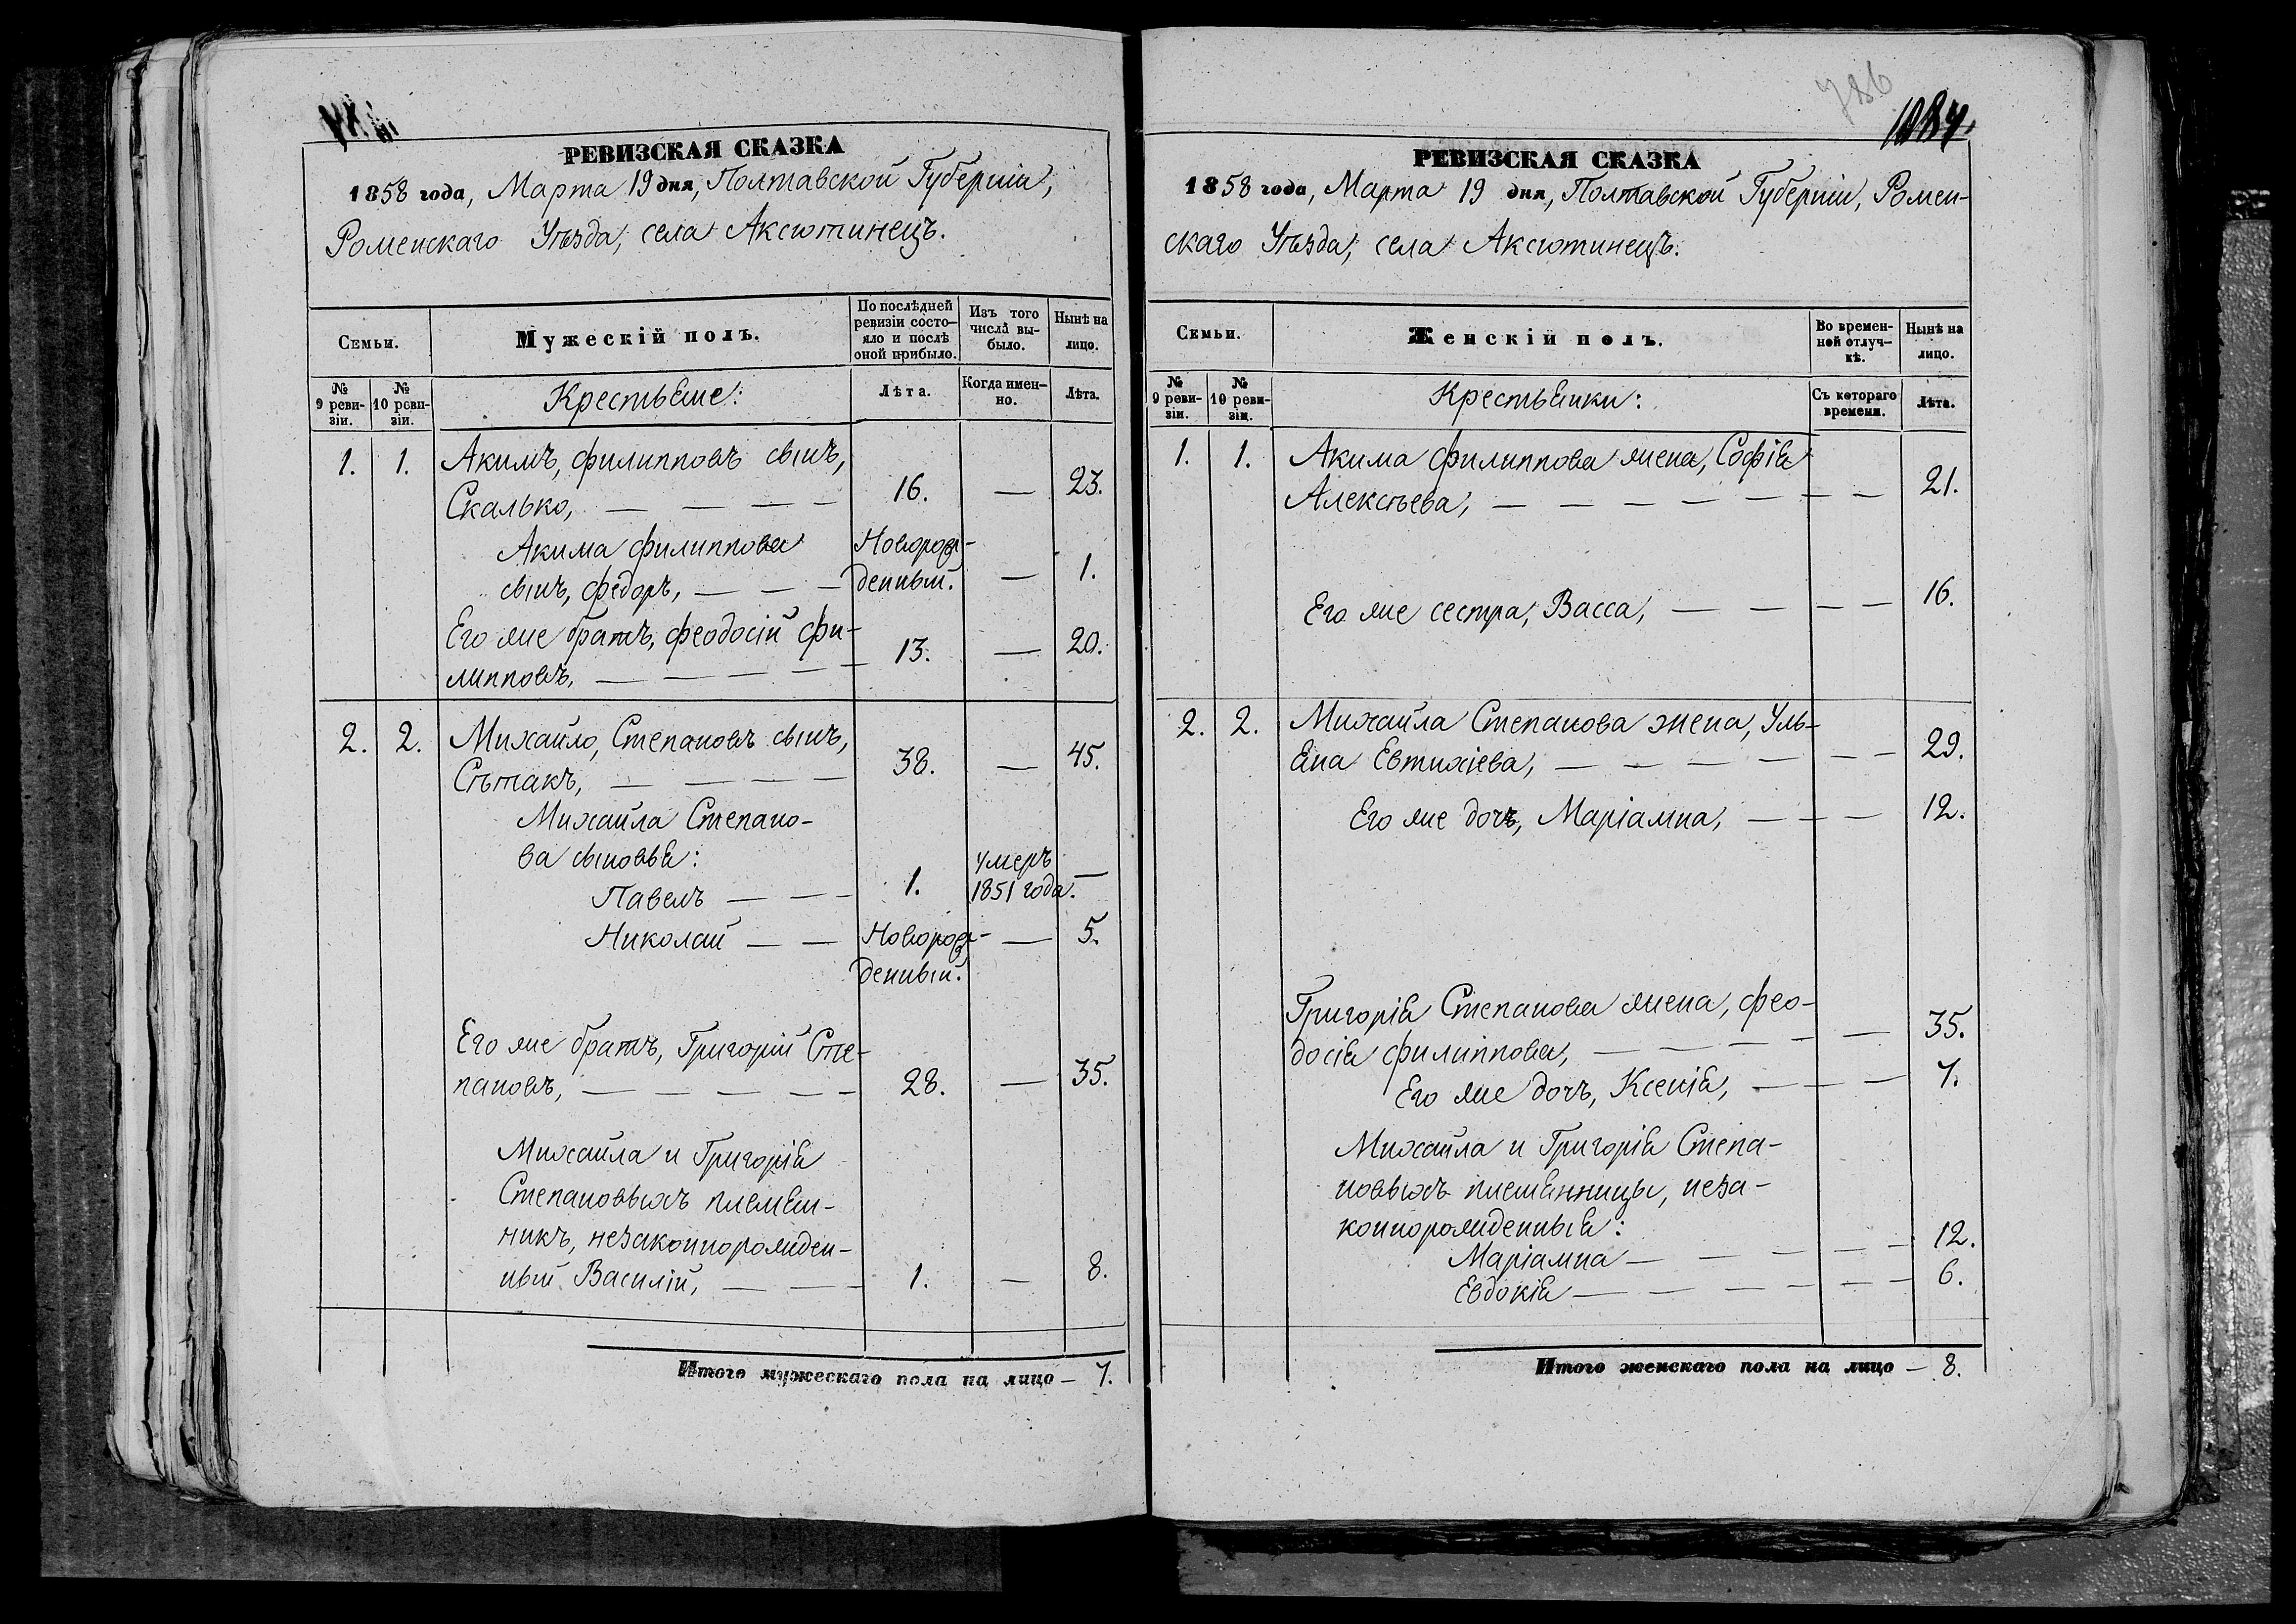 РЕВИЗСКАЯ СКАЗКА
1858 года, Марта 19 дня, Полтавской Губерніи,
Роменскаго Уѣзда, села Аксютинецъ.
Семьи.
Мужескій полъ.
По послѣдней
ревизіи состо-
яло и послѣ
оной прибыло.
Изъ того
числа вы-
было.
Нынѣ на
лицо.
№
9 реви-
зіи.
№
10 реви-
зіи.
Крестьяне:
Лѣта.
Когда имен-
но.
Лѣта.
1. 1. Акимъ, Филипповъ сынъ,
Скалько, — — — — 16. — 23.
Акима Филиппова Новорож-
сынъ, Федоръ, — — — денный. — 1.
Его же братъ, Феодосій Фи-
липповъ, — — — — — 13. — 20.
2. 2. Михайло, Степановъ сынъ,
Сѣтакъ, — — — — 38. — 45.
Михайла Степано-
ва сыновья:
Павелъ — — — 1. умеръ 1851 года. —
Николай — — Новорож- — 5.
денный.
Его же братъ, Григорій Сте-
пановъ, — — — — — 28. — 35.
Михайла и Григорія
Степановыхъ племян-
никъ, незаконнорожден-
ный Василій, — — — 1. — 8.
Итого мужескаго пола на лицо — 7.
786
1084.
РЕВИЗСКАЯ СКАЗКА
1858 года, Марта 19 дня, Полтавской Губерніи, Ромен-
скаго Уѣзда, села Аксютинецъ.
Семьи.
Женскій полъ.
Во времен-
ной отлуч-
кѣ.
Нынѣ на
лицо.
№
9 реви-
зіи.
№
10 реви-
зіи.
Крестьянки:
Съ котораго
времени.
Лѣта.
1. 1. Акима Филиппова жена, Софія
Алексѣева, — — — — — — — 21.
Его же сестра, Васса, — — — — 16.
2. 2. Михайла Степанова жена, Уль-
яна Евтихіева, — — — — — — 29.
Его же дочь, Маріамна, — — — 12.
Григорія Степанова жена, Фео-
досія Филиппова, — — — — — 35.
Его же дочь, Ксенія, — — — 7.
Михайла и Григорія Степа-
новыхъ племянницы, неза-
коннорожденныя:
Маріамна — — — — — — 12.
Евдокія — — — — — — 6.
Итого женскаго пола на лицо — 8.